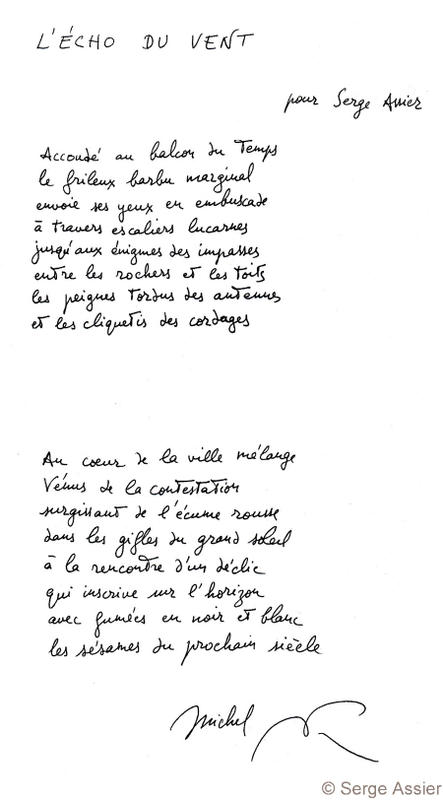 L'ÉCHO DU VENT
pour Serge Assier
Accoudé au balcon du Temps
le frileux barbu marginal
envoie ses yeux en embuscade
à travers escaliers lucarnes
jusqu'aux énigmes des impasses
entre les rochers et les toits
les peignes tordus des antennes
et les cliquetis des cordages
Au coeur de la ville mélange
Vénus de la contestation
surgissant de l'écume rousse
dans les gifles du grand soleil
à la rencontre d'un déclic
qui inscrive sur l'horizon
avec fumées en noir et blanc
les sésames du prochain siècle
Michel
© Serge Assier